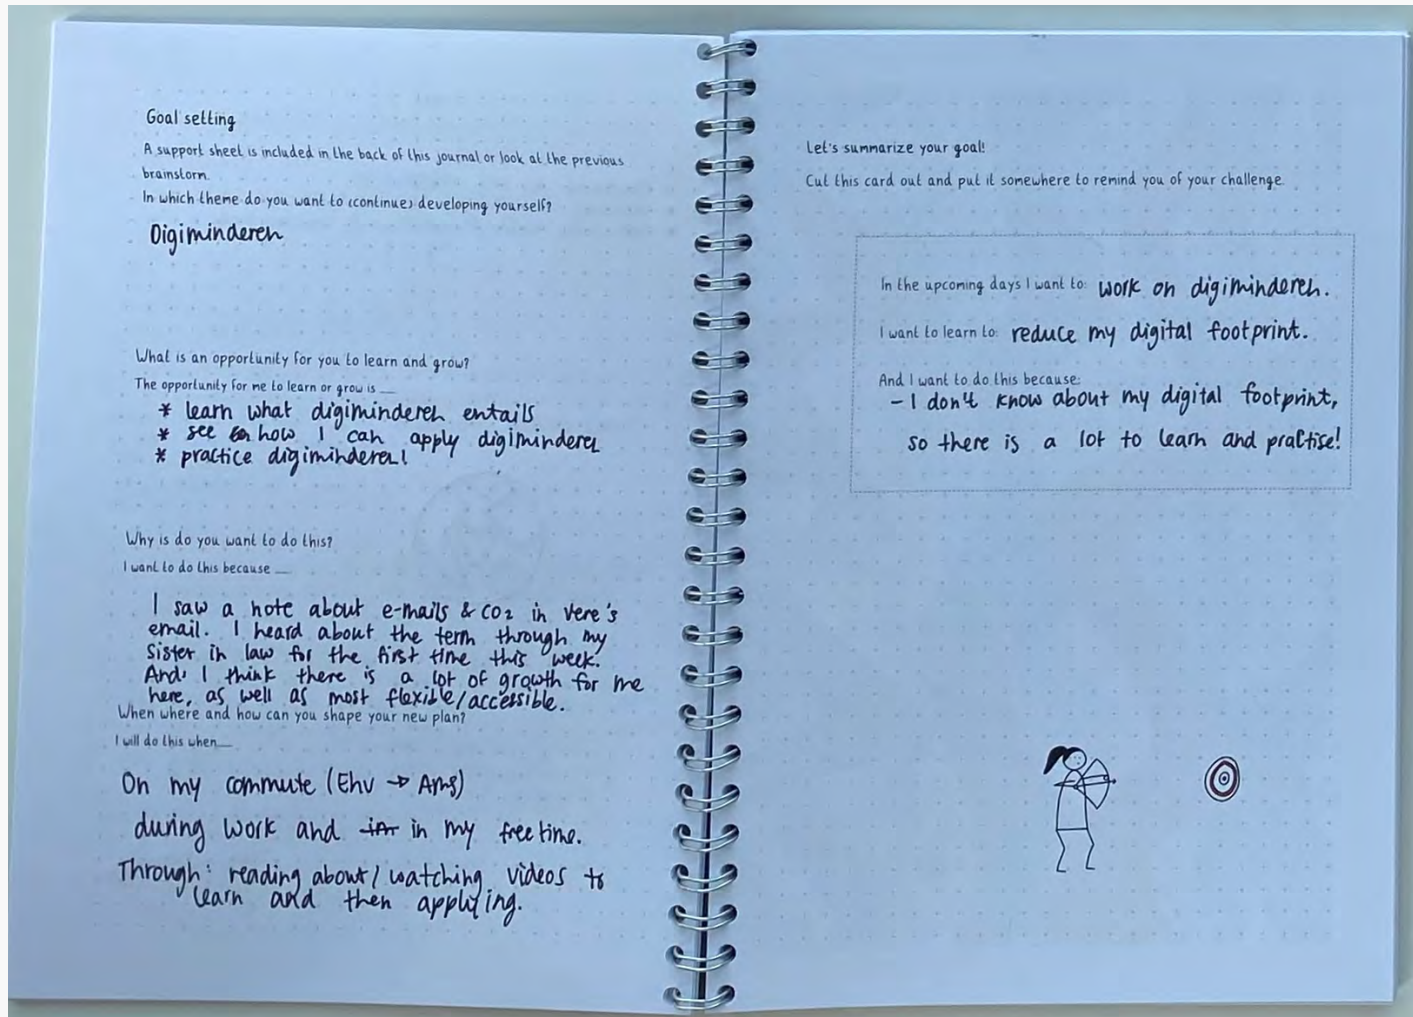 Goal setting
A support sheet is included in the back of this journal or look at the previous
brainstorm.
In which theme do you want to (continue) developing yourself?
Digiminderen
What is an opportunity for you to learn and grow?
The opportunity for me to learn or grow is ___
* learn what digiminderen entails
* see how I can apply digiminderen
* practice digiminderen!
Why is do you want to do this?
I want to do this because ___
I saw a note about e-mails & CO2 in Vere's
email. I heard about the term through my
sister in law for the first time this week.
And, I think there is a lot of growth for me
here, as well as most flexible/accessible.
When where and how can you shape your new plan?
I will do this when___
On my commute (Ehv → Ams)
during work and in my free time.
Through: reading about / watching videos to
learn and then applying.
Let's summarize your goal!
Cut this card out and put it somewhere to remind you of your challenge.
In the upcoming days I want to: work on digiminderen.
I want to learn to: reduce my digital footprint.
And I want to do this because:
- I don't know about my digital footprint,
so there is a lot to learn and practise!